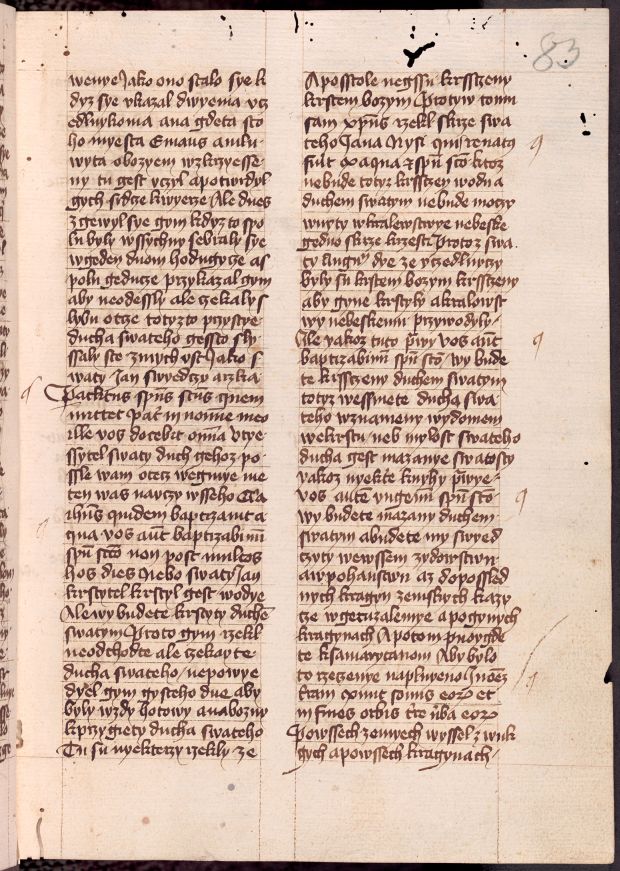 83
wenye Jako ono stalo sye k
dyz sye vkazal dwyema vcz
edlnykoma ana gdeta sto
ho myesta Emaus a mlu
wyta o bozyem wzkrzyesse
ny tu gest vczyl a potwrdyl
gych srdze kwyerze Ale dnes
zgewyl sye gym kdyz to spo
lu byly wssychny sebraly sye
w geden duom hodugycze as
polu geducze przykazal gym
aby neodessly ale czekaly s
lybu otcze totyzto przystye
ducha swateho gessto sly
ssaly ste zmych vst Jako s
waty Jan swyedczy arzka
Paclitus spūs scūs quem
mittet pat in nomine meo
ille vos docebit omīa vtye
ssytel swaty duch gehoz po
ssle wam otecz wegmye me
ten was nauczy wsseho
ihūs quidem baptizauit a
qua vos aūt baptizabimi
spū scō non post multos
hos dies Nebo swaty Jan
krstytel krstyl gest wodye
Ale wy budete krstyty duchē
swatym Proto gym rzekl
neodchodte ale czekayte
ducha swateho nepowye
dyel gym gysteho dne aby
byly wzdy hotowy anabozny
kprzygiety ducha swateho
Tu su nyekterzy rzekly ze
Aposstole negssu krsstzeny
krstem bozym Protyw tomu
sam xpūs rzekl skrze swa
teho Jana Nysi quis renatus
fuit ex aqua et spū scō ktoz
nebude totyz krsstzen wodu a
duchem swatym nebude moczy
wnyty wkralewstwye nebeske
gedno skrze krzest Protoz swa
ty dye ze vczedlnyczy
byly su krstem bozym krsstzeny
aby gyne krstyly akralowst
wy nebeskemu przywodyly
Ale yakoz tuto prawy vos aūt
baptizabimī spū scō wy bude
te krsstzeny duchem swatym
totyz wessmete ducha swa
teho wznameny wydomem
wekrstu neb mylost swateho
ducha gest mazanye swatosty
yakoz nyekte knyhy prwye
vos autē vngemī spū scō
wy budete mazany duchem
swatym a budete my swyed
czyty wewssem zydowstwu
awpohanstwu az dopossled
nych kragyn zemskych kazy
cze wgeruzalemye a pogynych
kragynach A potom puoygde
te ksamarytanom Aby bylo
to rzeczenye naplneno In oēz
tram exiuit sonus eorum et
in fines orbis tre vba eorum
Powssech zemyech wyssel zwuk
gych a powssech kragynach